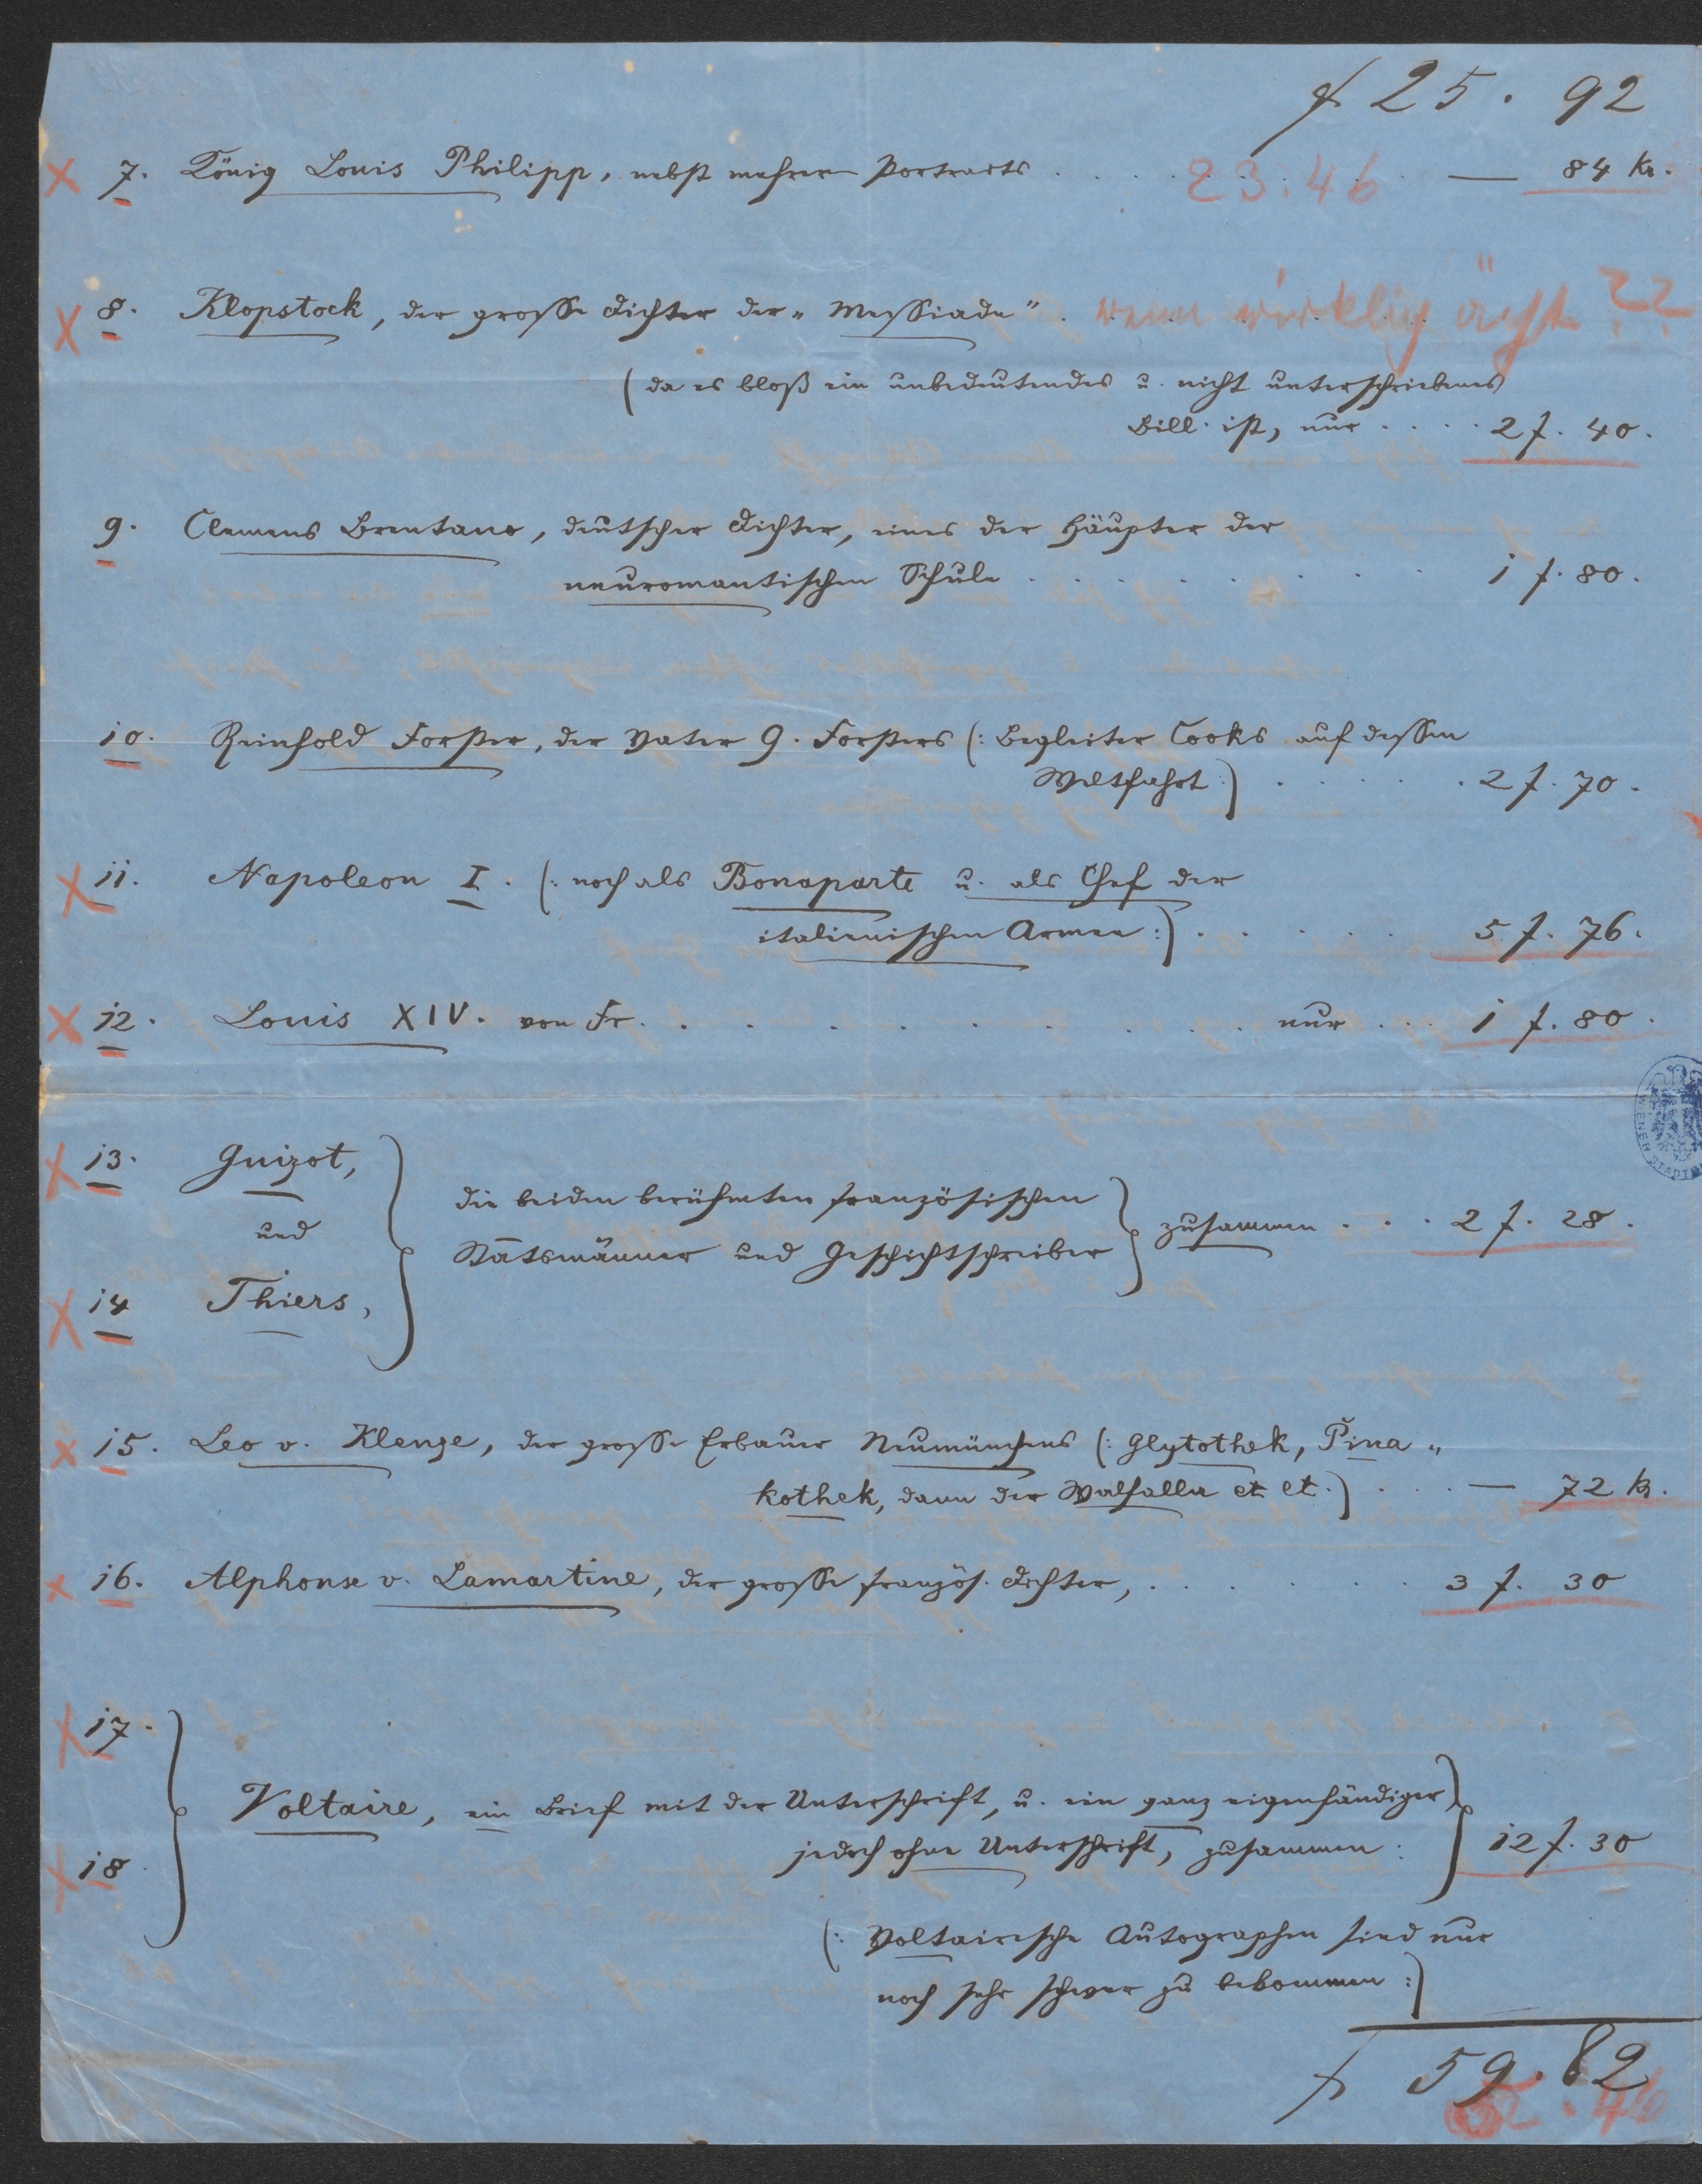 f 25 . 92
X 7. König Louis Philipp, nebst mehrern Portraits . . . . 23.46 — 84 kr.
X 8. Klopstock, der grosse Dichter der „Messiade" . wenn wirklich ächt ??
(da es bloß ein unbedeutendes u. nicht unterschriebenes
Bill. ist, nur . . . . 2 f. 40.
9. Clemens Brentano, deutscher Dichter, eines der Häupter der
neuromantischen Schule . . . . . . . . 1 f. 80.
10. Reinhold Forster, der Vater G. Forsters (: Begleiter Cooks auf dessen
Weltfahrt :) . . . . . 2 f. 70.
X 11. Napoleon I. (: noch als Bonaparte u. als Chef der
italienischen Armee :) . . . . . 5 f. 76.
X 12. Louis XIV. von Fr. . . . . . . . . . nur . . . 1 f. 80.
X 13. Guizot,
und
X 14 Thiers,
die beiden berühmten französischen
Statsmänner und Geschichtschreiber
zusammen . . . 2 f. 28.
X 15. Leo v. Klenze, der grosse Erbauer Neumünchens (: Glytothek, Pina„
kothek, dann der Walhalla et et.) . . . — 72 kr.
X 16. Alphonse v. Lamartine, der grosse französ. Dichter, . . . . . 3 f. 30
X 17.
X 18.
Voltaire, ein Brief mit der Unterschrift, u. ein ganz eigenhändiger,
jedoch ohne Unterschrift, zusammen :
12 f. 30
(: Voltairische Autographen sind nur
noch sehr schwer zu bekommen :)
f 59 . 82
. 46
WIENER STADT